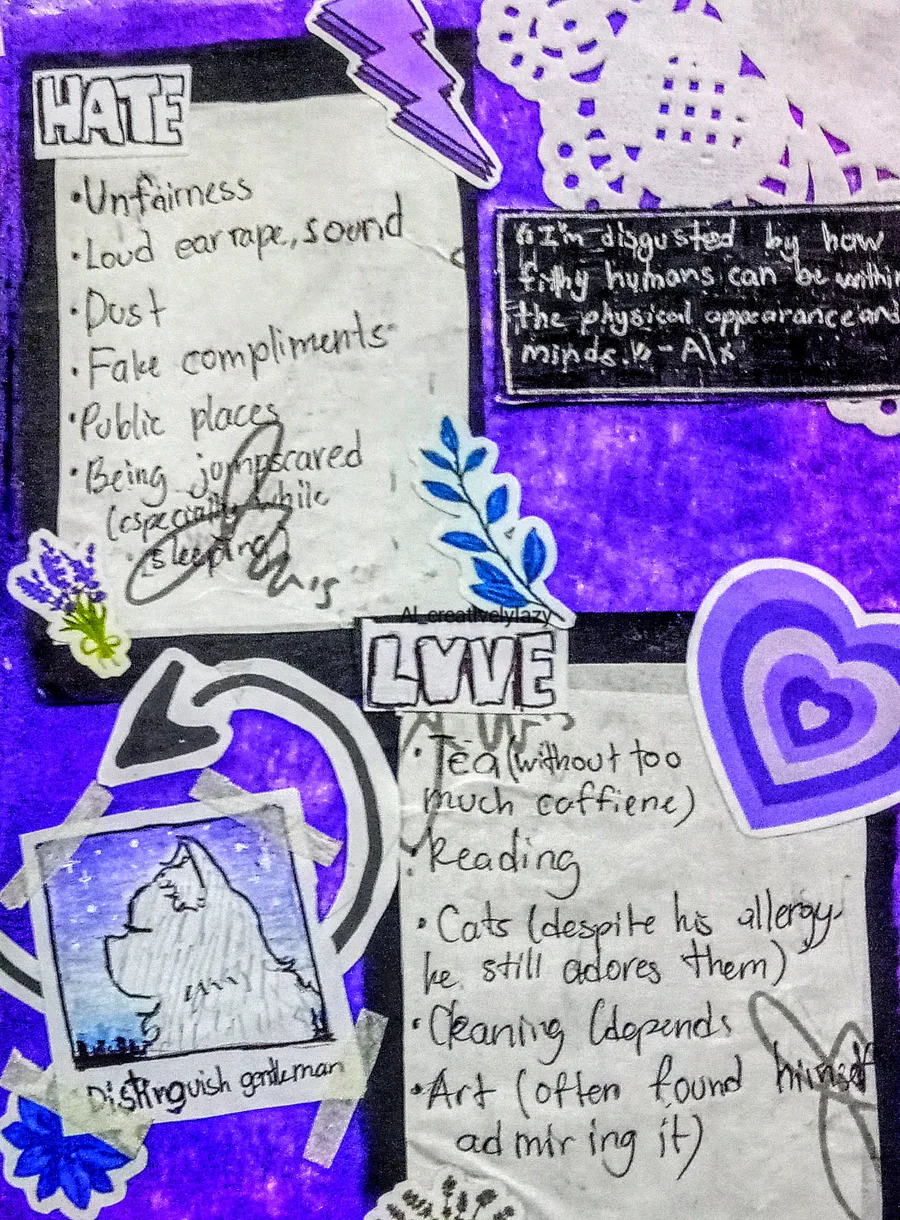 HATE
•Unfairness
•Loud ear rape, sound
•Dust
•Fake compliments
•Public places
•Being jumpscared
(especially while
sleeping)
"I'm disgusted by how
filthy humans can be within
the physical appearance and
minds." - A\x
Al_creativelylazy
LVVE
•Tea (without too
much caffiene)
•Reading
•Cats (despite his allergy
he still adores them)
•Cleaning (depends
•Art (often found himself
admiring it)
Distinguish gentleman